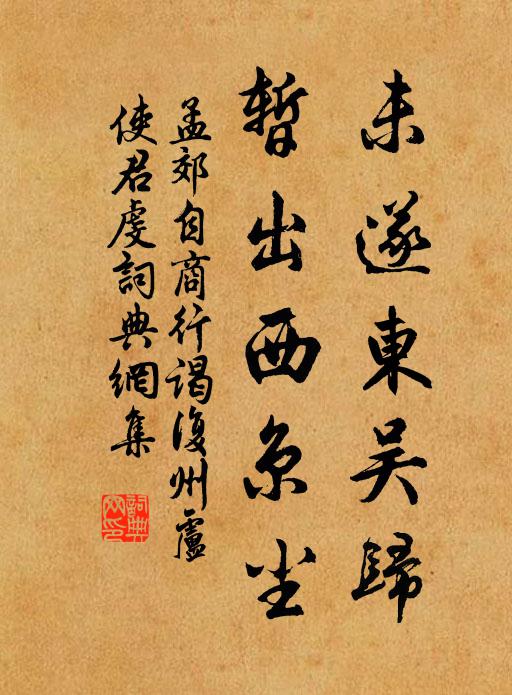 未遂東吴歸
暫出西京尘
孟郊自商行谒復州盧
使君虔詞典網集
詞典網印